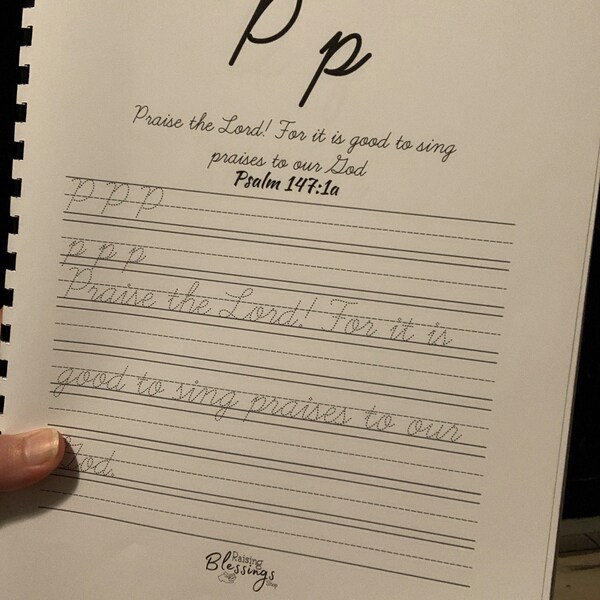 P p
Praise the Lord! For it is good to sing
praises to our God
Psalm 147:1a
P P P
p p p
Praise the Lord! For it is
good to sing praises to our
God.
Raising
Blessings
Shop